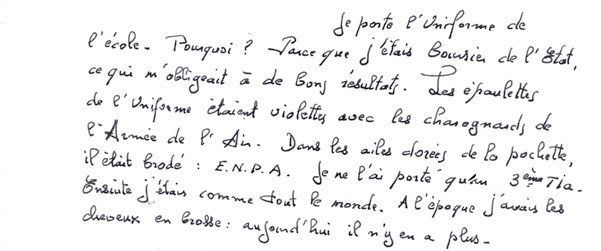 Je porte l'Uniforme de
l'école. Pourquoi ? Parce que j'étais Boursier de l'Etat,
ce qui m'obligeait à de bons résultats. Les épaulettes
de l'Uniforme étaient violettes avec les charognards de
l'Armée de l'Air. Dans les ailes dorées de la pochette,
il était brodé : E.N.P.A. Je ne l'ai porté qu'en 3ème TIa.
Ensuite j'étais comme tout le monde. A l'époque j'avais les
cheveux en brosse : aujourd'hui il n'y en a plus.